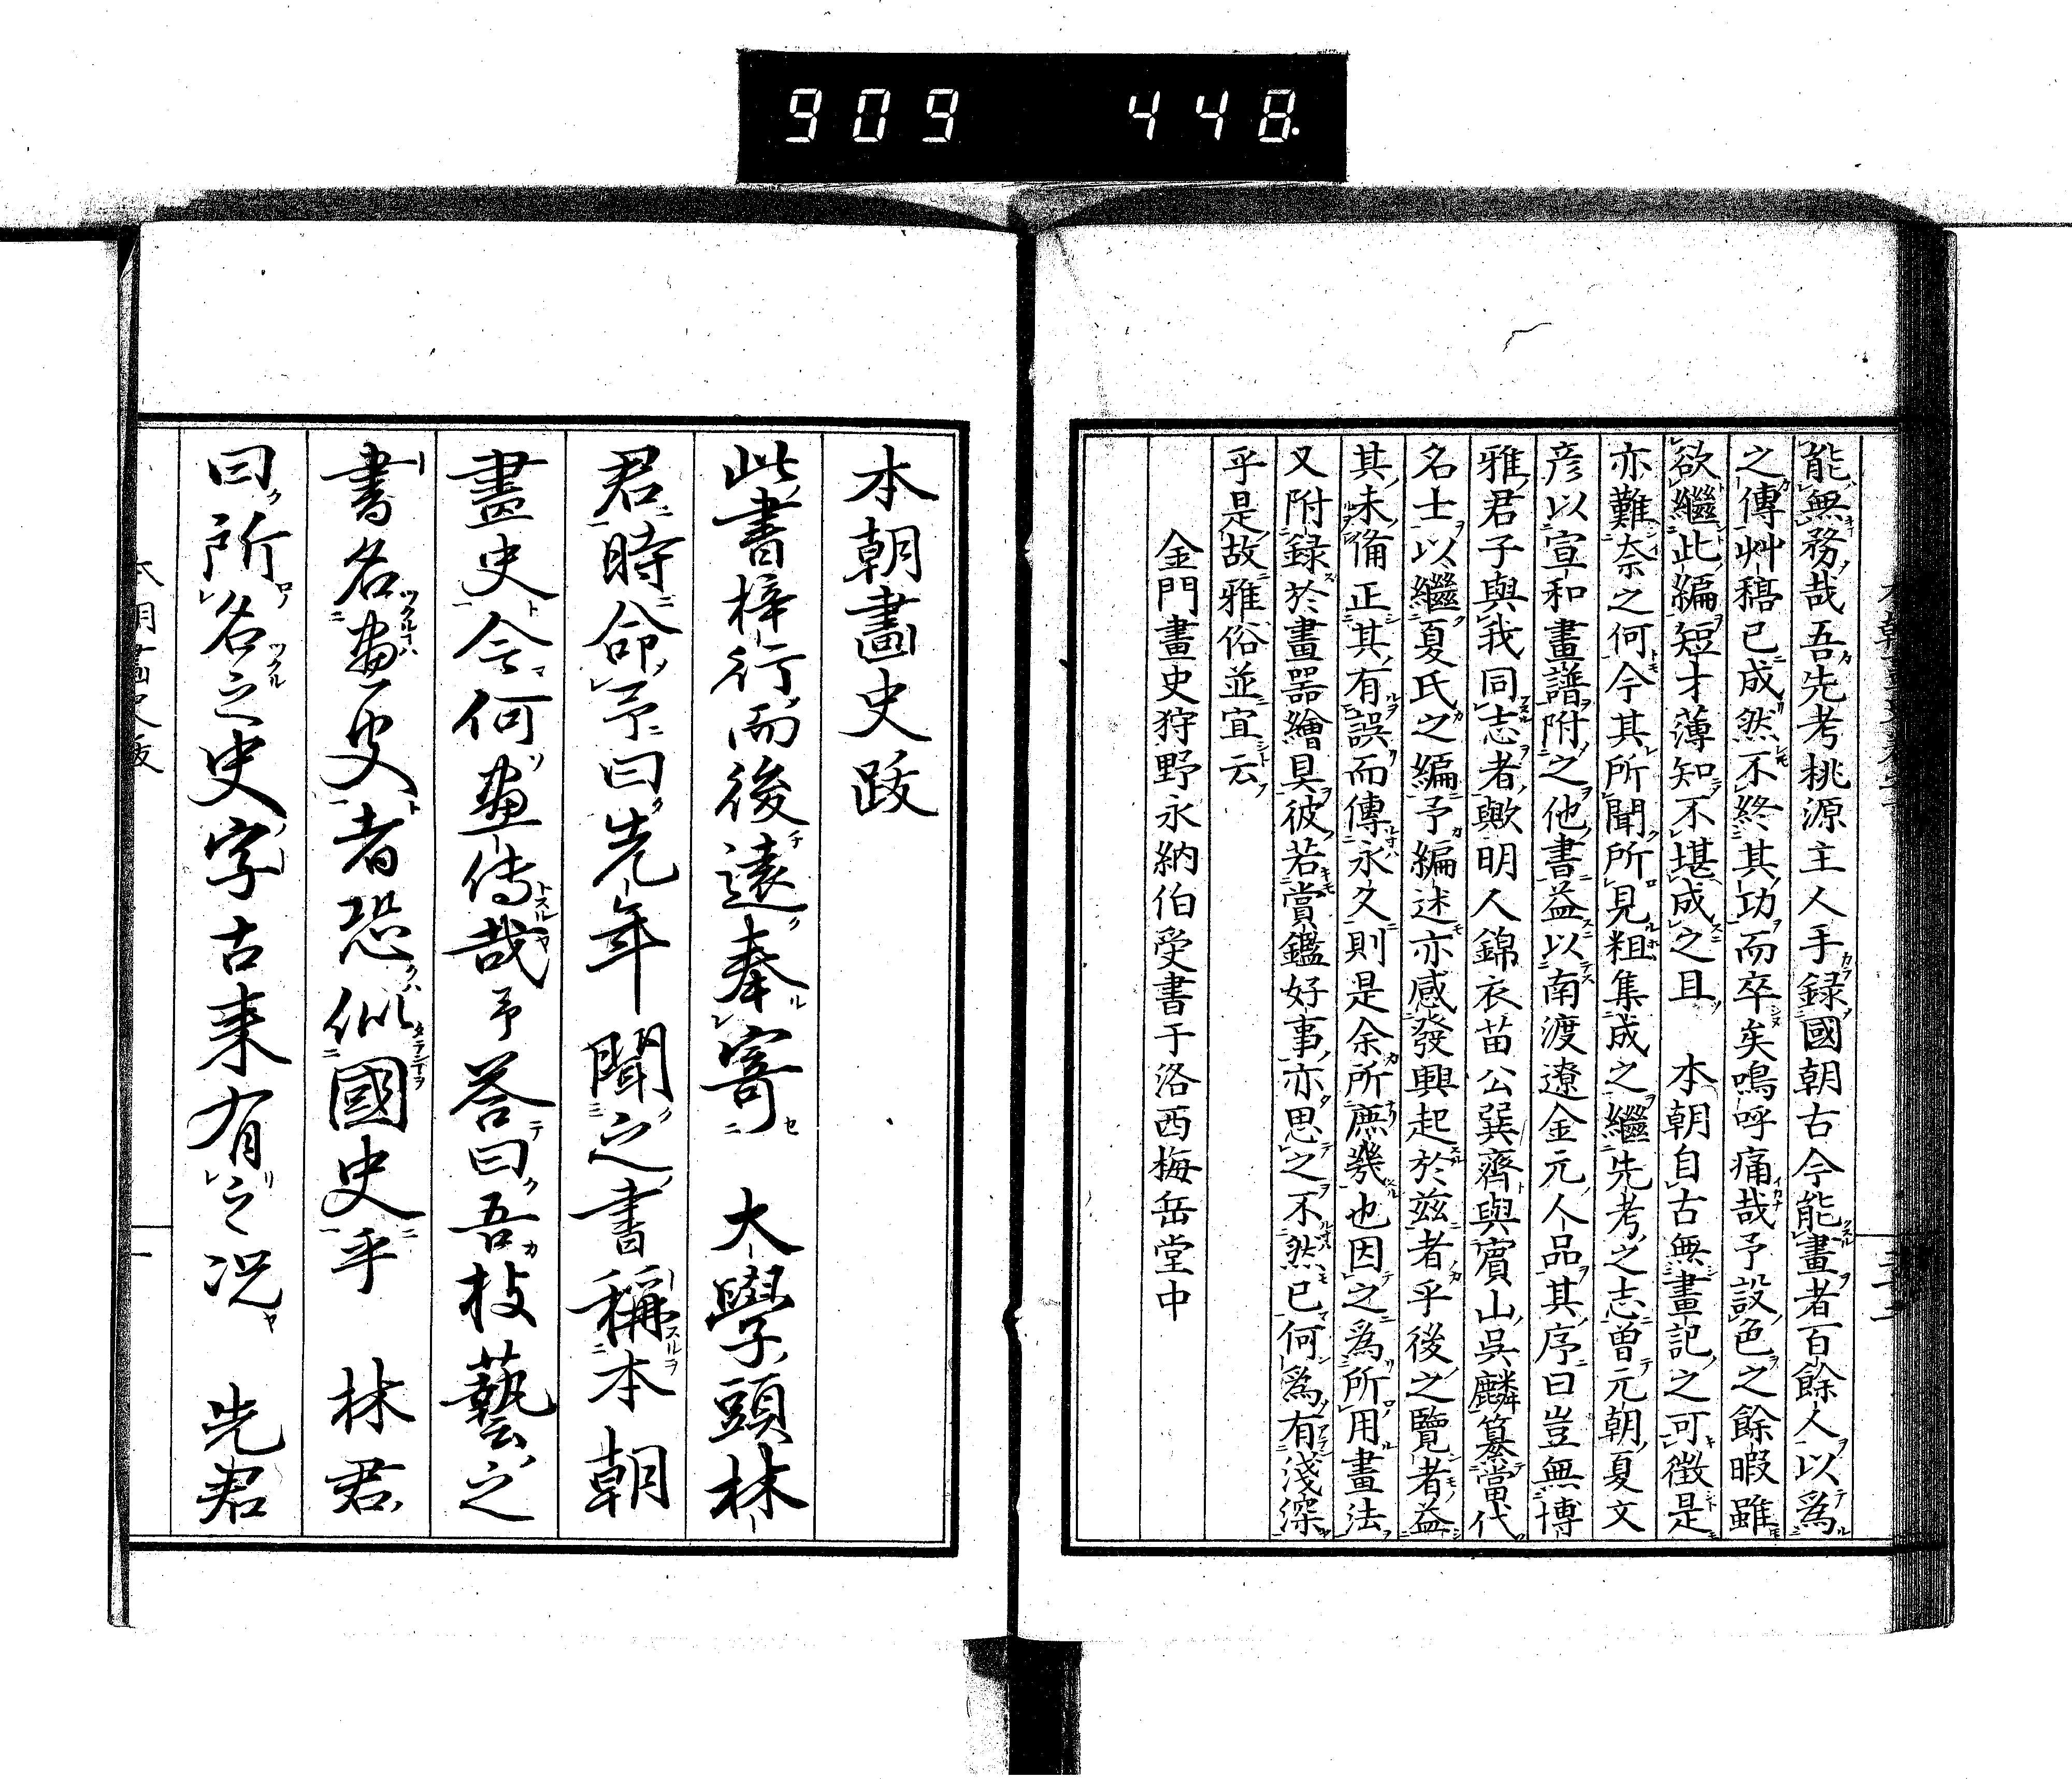 909 448.
能無務哉吾先考桃源主人手録國朝古今能畫者百餘人以爲
之傳艸稿已成然不終其功而卒矣嗚呼痛哉予設色之餘暇雖
欲繼此編短才薄知不堪成之且　本朝自古無畫記之可徴是
亦難奈之何今其所聞所見粗集成之繼先考之志曽元朝夏文
彦以宣和畫譜附之他書益以南渡遼金元人品其序曰豈無博
雅君子與我同志者歟明人錦衣苗公巽齊與賓山吳麟纂當代
名士以繼夏氏之編予編述亦感發興起於兹者乎後之覽者益
其未備正其有誤而傳永久則是余所庶幾也因之爲所用畫法
又附録於畫器繪具彼若賞鑑好事亦思之不然已何爲有淺深
乎是故雅俗並宜云
金門畫史狩野永納伯受書于洛西梅岳堂中
本朝畫史跋
此書梓行而後遠奉寄　大學頭林
君時命予曰先年聞之書稱本朝
畫史今何畫傳哉予答曰吾技藝之
書名畫史者恐似國史乎　林君
曰所名之史字古来有之况　先君